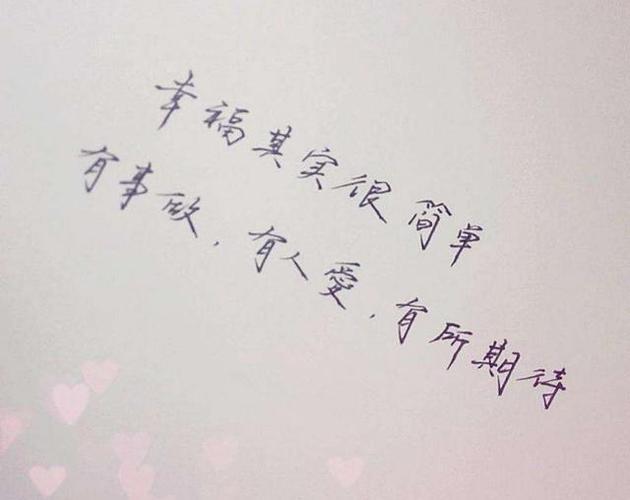 幸福其实很简单
有事做，有人愛，有所期待